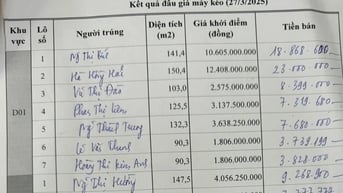 Kết quả đấu giá máy kéo (27/3/2025)
Khu vực Lô số Người trúng Diện tích (m2) Giá khởi điểm (đồng) Tiền bán
D01
1 Ng Thị 141,4 10.605.000.000 18.868.600
2 Hà Hồng Hải 150,4 12.408.000.000 23.000.000
3 Vũ Thị Đào 103,0 2.575.000.000 8.399.000
4 Phạm Thị 125,5 3.137.500.000 7.319.680
5 Ng Trung 132,3 3.638.250.000 7.680.000
6 Lê Văn 90,3 1.806.000.000 3.739.199
7 Hoàng Thị Kim Anh 90,3 1.806.000.000 3.828.000
1 Ng Thị Hường 147,5 4.056.250.000 9.268.900